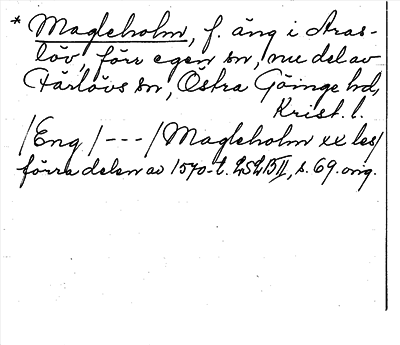 * Magleholm, f. äng i Aras-
löv, förr egen sn, nu del av
Färlövs sn, Östra Göinge hd,
Krist. l.
/Eng / --- / Magleholm xx les/
förra delen av 1570-t. LSLBII, s. 69. orig.